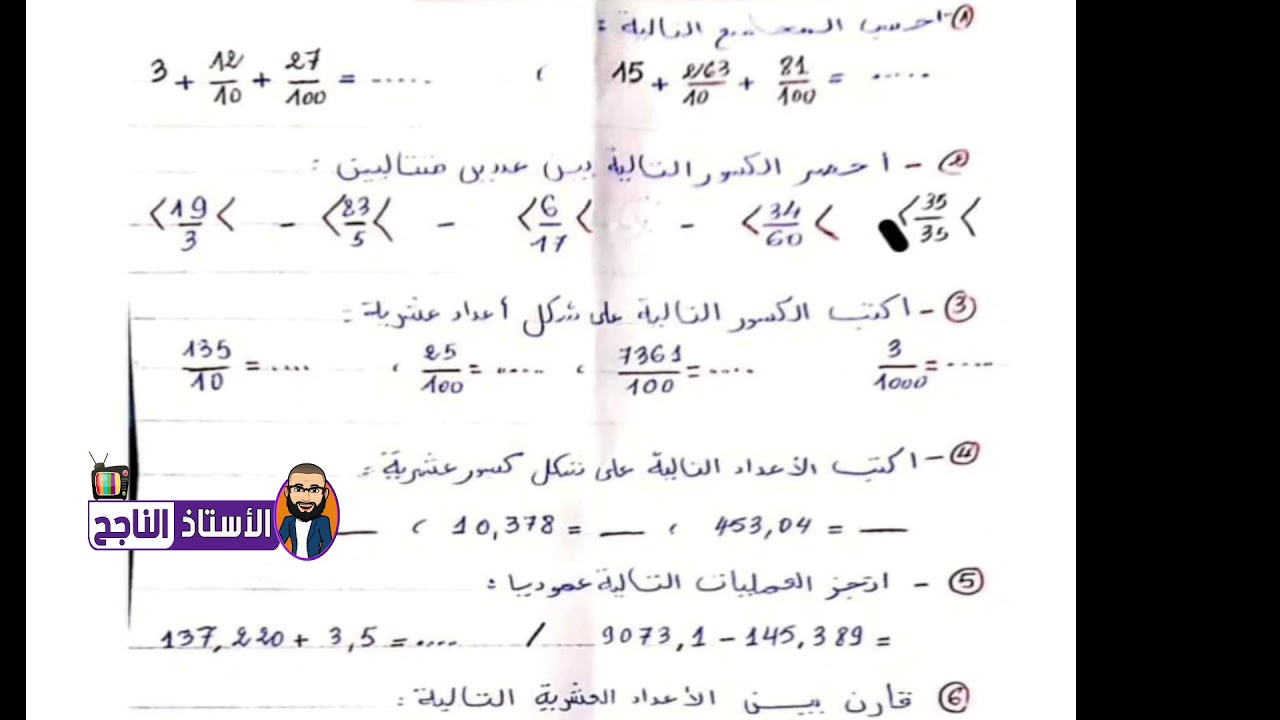 ①- احسب المجاميع التالية :
3 + 12/10 + 27/100 = ...... ، 15 + 263/10 + 81/100 = ......
② - احصر الكسور التالية بين عددين متتاليين :
< 19/3 < - < 23/5 < - < 6/17 < - < 34/60 < < 35/35 <
③ - اكتب الكسور التالية على شكل أعداد عشرية :
135/10 = .... ، 25/100 = ..... ، 7361/100 = .... 3/1000 = .....
④ - اكتب الأعداد التالية على شكل كسور عشرية :
__ ، 10,378 = __ ، 453,04 = __
الأستاذ الناجح
⑤ - انجز العمليات التالية عموديا :
137,220 + 3,5 = ..... / 9073,1 - 145,389 =
⑥ قارن بين الأعداد العشرية التالية :